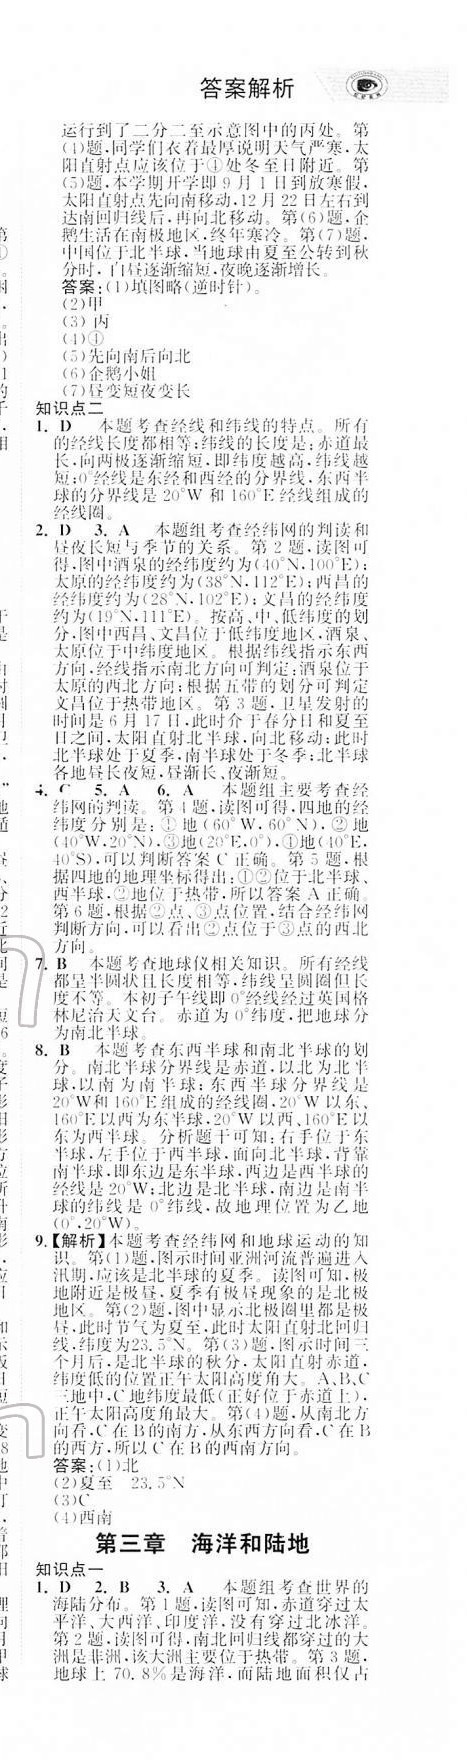 答案解析
运行到了二分二至示意图中的丙处。第
(4)题,同学们衣着最厚说明天气严寒,太
阳直射点应该位于④处冬至日附近。第
(5)题,本学期开学即9月1日到放寒假,
太阳直射点先向南移动,12月22日左右到
达南回归线后,再向北移动。第(6)题,企
鹅生活在南极地区,终年寒冷。第(7)题,
中国位于北半球,当地球由夏至公转到秋
分时,白昼逐渐缩短,夜晚逐渐增长。
答案:(1)填图略(逆时针)。
(2)甲
(3)丙
(4)④
(5)先向南后向北
(6)企鹅小姐
(7)昼变短夜变长
知识点二
1. D 本题考查经线和纬线的特点。所有
的经线长度都相等;纬线的长度是:赤道最
长,向两极逐渐缩短,即纬度越高,纬线越
短;0°经线是东经和西经的分界线,东西半
球的分界线是20°W和160°E经线组成的
经线圈。
2. D 3. A 本题组考查经纬网的判读和
昼夜长短与季节的关系。第2题,读图可
得,图中酒泉的经纬度约为(40°N,100°E);
太原的经纬度约为(38°N,112°E);西昌的
经纬度约为(28°N,102°E);文昌的经纬度
约为(19°N,111°E)。按高、中、低纬度的划
分,图中西昌、文昌位于低纬度地区,酒泉、
太原位于中纬度地区。根据纬线指示东西
方向,经线指示南北方向可判定:酒泉位于
太原的西北方向;根据五带的划分可判定
文昌位于热带地区。第3题,卫星发射的
时间是6月17日,此时介于春分日和夏至
日之间,太阳直射北半球,向北移动;此时
北半球处于夏季,南半球处于冬季;北半球
各地昼长夜短,昼渐长、夜渐短。
4. C 5. A 6. A 本题组主要考查经
纬网的判读。第4题,读图可得,四地的经
纬度分别是:①地(60°W,60°N),②地
(40°W,20°N),③地(20°E,0°),④地(40°E,
40°S),可以判断答案C正确。第5题,根
据四地的地理坐标得出:①②位于北半球、
西半球,②地位于热带,所以答案A正确。
第6题,根据②点、③点位置,结合经纬网
判断方向,可以看出②点位于③点的西北
方向。
7. B 本题考查地球仪相关知识。所有经线
都呈半圆状且长度相等,纬线呈圆圈但长
度不等。本初子午线即0°经线经过英国格
林尼治天文台。赤道为0°纬度,把地球分
为南北半球。
8. B 本题考查东西半球和南北半球的划
分。南北半球分界线是赤道,以北为北半
球,以南为南半球;东西半球分界线是
20°W和160°E组成的经线圈,20°W以东、
160°E以西为东半球,20°W以西、160°E以
东为西半球。分析题干可知:右手位于东
半球,左手位于西半球,面向北半球,背靠
南半球,即东边是东半球,西边是西半球的
经线是20°W;北边是北半球,南边是南半
球的纬线是0°纬线,故地理位置为乙地
(0°,20°W)。
9.【解析】本题考查经纬网和地球运动的知
识。第(1)题,图示时间亚洲河流普遍进入
汛期,应该是北半球的夏季。读图可知,极
地附近是极昼,夏季有极昼现象的是北极
地区。第(2)题,图中显示北极圈里都是极
昼,此时节气为夏至,此时太阳直射北回归
线,纬度为23.5°N。第(3)题,图示时间三
个月后,是北半球的秋分,太阳直射赤道,
纬度低的位置正午太阳高度角大。A、B、C
三地中,C地纬度最低(正好位于赤道上),
正午太阳高度角最大。第(4)题,从南北方
向看,C在B的南方,从东西方向看,C在B
的西方,所以C在B的西南方向。
答案:(1)北
(2)夏至 23.5°N
(3)C
(4)西南
第三章 海洋和陆地
知识点一
1. D 2. B 3. A 本题组考查世界的
海陆分布。第1题,读图可知,赤道穿过太
平洋、大西洋、印度洋,没有穿过北冰洋。
第2题,读图可得,南北回归线都穿过的大
洲是非洲,该大洲主要位于热带。第3题,
地球上70.8%是海洋,而陆地面积仅占